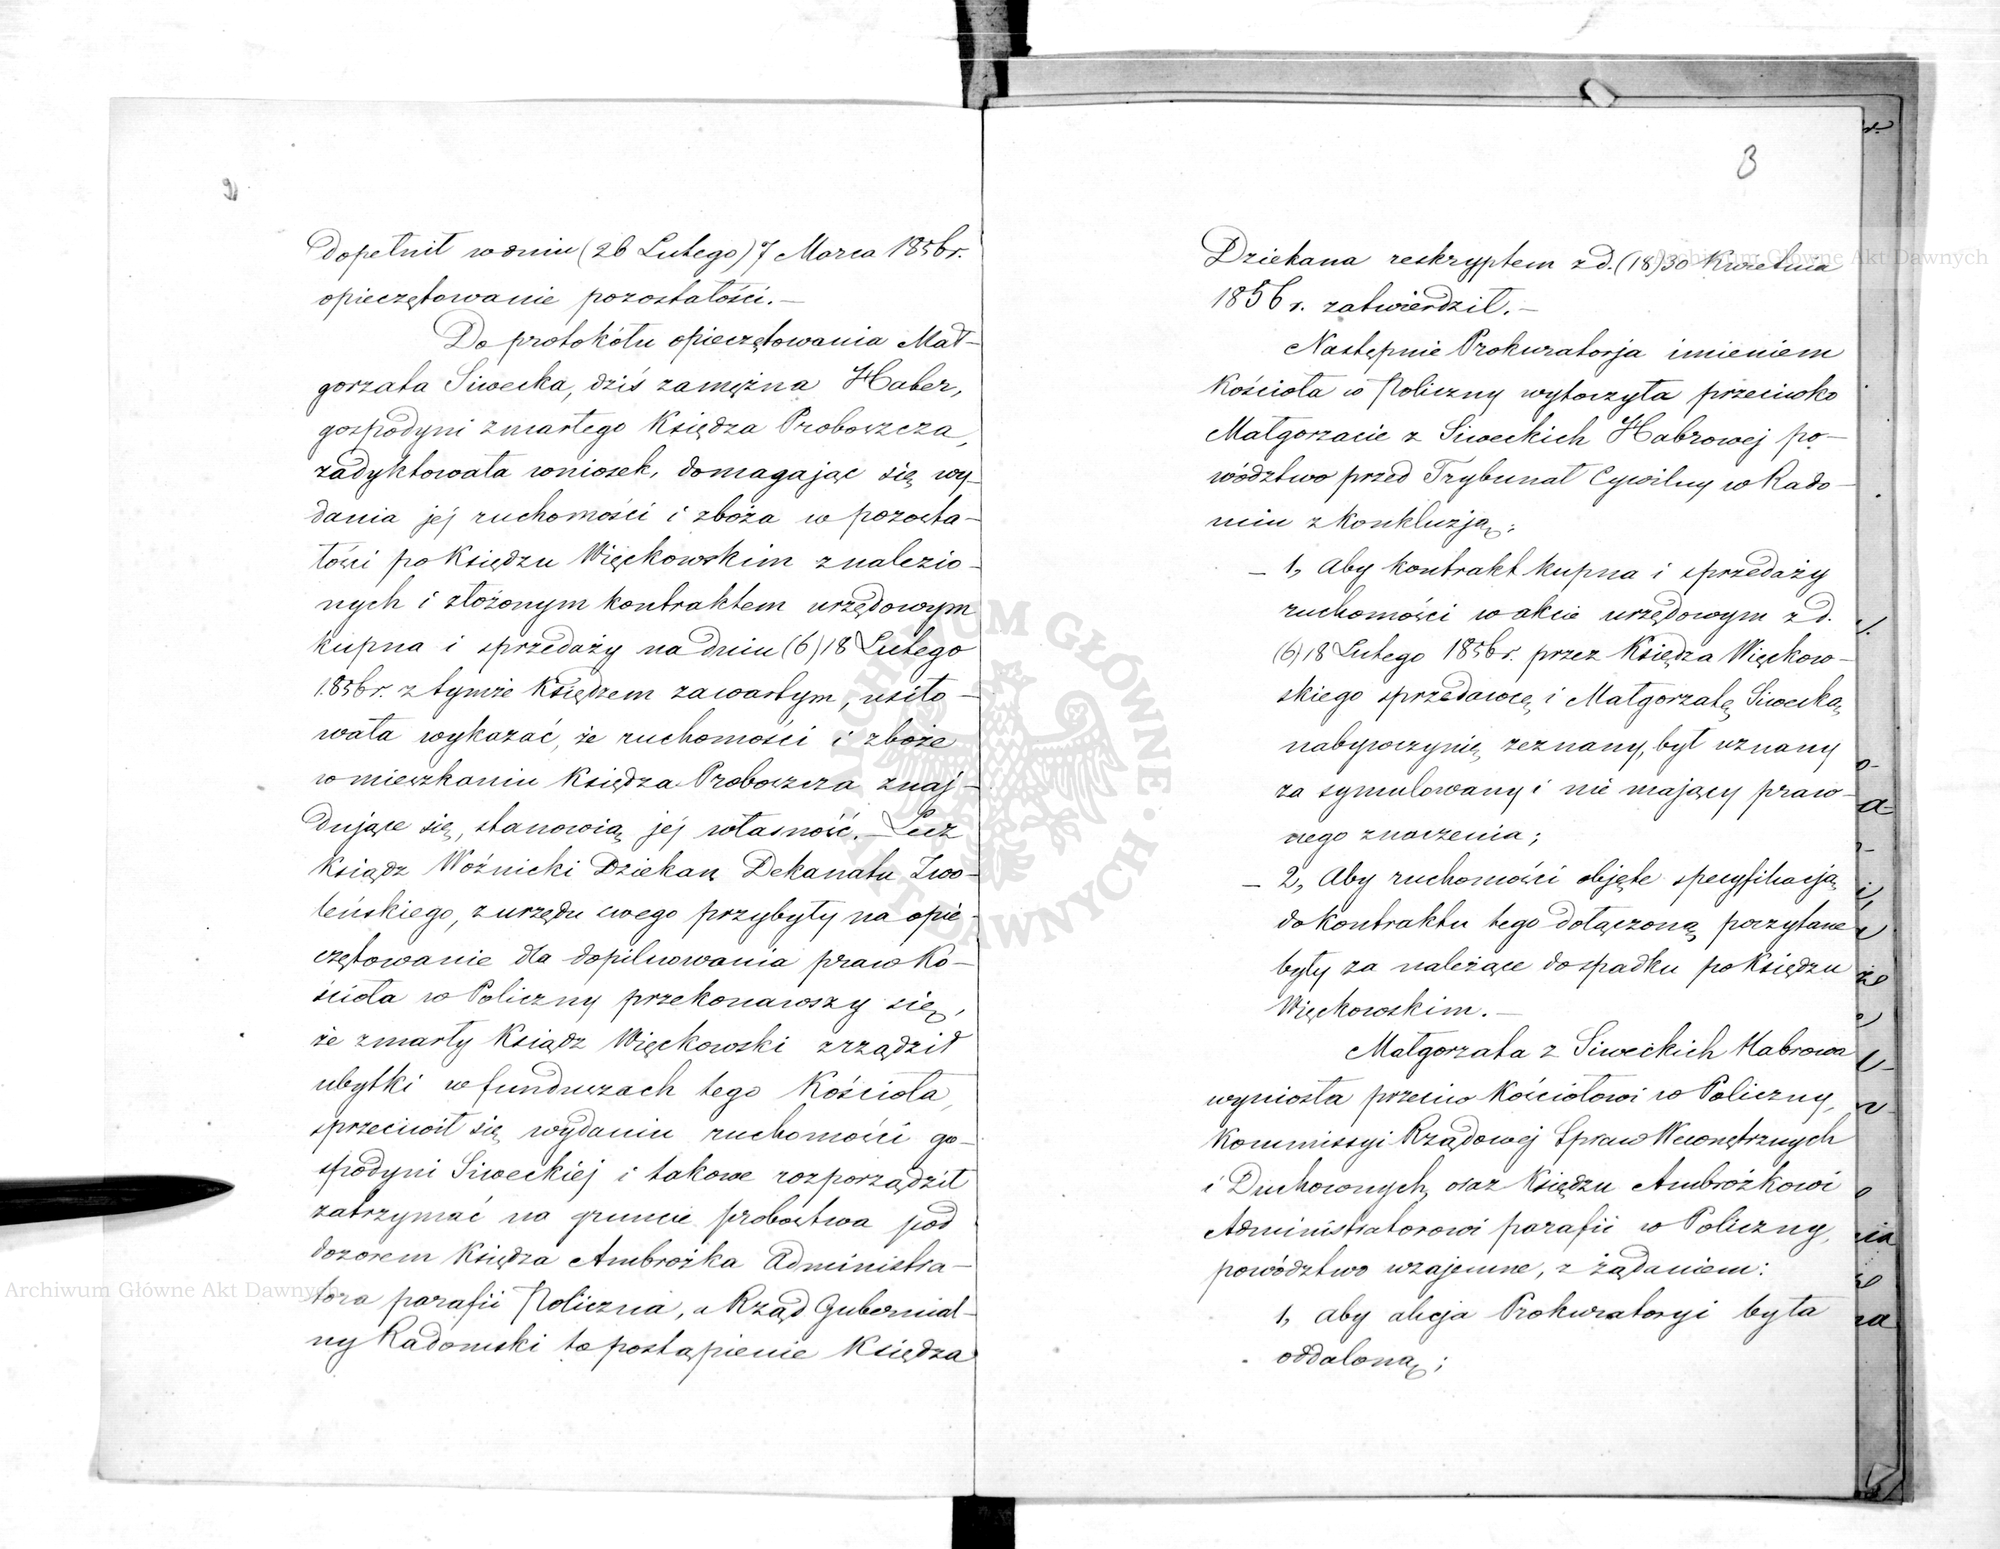 dopełnił w dniu (26 Lutego) 7 Marca 1856 r.
opieczętowanie pozostałości. —
Do protokółu opieczętowania Mał-
gorzata Siwecka, dziś zamężna Haber,
gospodyni zmarłego Księdza Proboszcza,
zadyktowała wniosek, domagając się wy-
dania jej ruchomości i zboża w pozosta-
łości po Księdzu Więckowskim znalezio-
nych i złożonym kontraktem urzędowym
kupna i sprzedaży na dniu (6) 18 Lutego
1856 r. z tymże Księdzem zawartym, usiło-
wała wykazać, że ruchomości i zboże
w mieszkaniu Księdza Proboszcza znaj-
dujące się, stanowią jej własność. — Lecz
Ksiądz Woźnicki Dziekan Dekanatu Zwo-
leńskiego, z urzędu swego przybyły na opie-
czętowanie dla dopilnowania praw Ko-
ścioła w Policzny przekonawszy się,
że zmarły Ksiądz Więckowski zrządził
ubytki w funduszach tego Kościoła,
sprzeciwił się wydaniu ruchomości go-
spodyni Siweckiej i takowe rozporządził
zatrzymać na gruncie probostwa pod
dozorem Księdza Ambrożka Administra-
tora parafii Policzna, a Rząd Gubernial-
ny Radomski to postąpienie Księdza
3
Dziekana reskryptem z d. (18) 30 Kwietnia
1856 r. zatwierdził. —
Następnie Prokuratorja imieniem
Kościoła w Policzny wytoczyła przeciwko
Małgorzacie z Siweckich Habrowej po-
wództwo przed Trybunał Cywilny w Rado-
miu z konkluzją:
— 1, Aby kontrakt kupna i sprzedaży
ruchomości w akcie urzędowym z d.
(6) 18 Lutego 1856 r. przez Księdza Więckow-
skiego sprzedawcę i Małgorzatę Siwecką,
nabywczynię zeznany, był uznany
za symulowany i nie mający praw-
nego znaczenia;
— 2, Aby ruchomości objęte specyfikacją
do kontraktu tego dołączoną poczytane
były za należące do spadku po Księdzu
Więckowskim. —
Małgorzata z Siweckich Habrowa
wyniosła przeciw Kościołowi w Policzny,
Kommissyi Rządowej Spraw Wewnętrznych
i Duchownych, oraz Księdzu Ambrożkowi
Administratorowi parafii w Policzny,
powództwo wzajemne, z żądaniem:
1, Aby akcja Prokuratoryi była
oddaloną;
Archiwum Główne Akt Dawnych
Archiwum Główne Akt Dawnych
ARCHIWUM GŁÓWNE AKT DAWNYCH